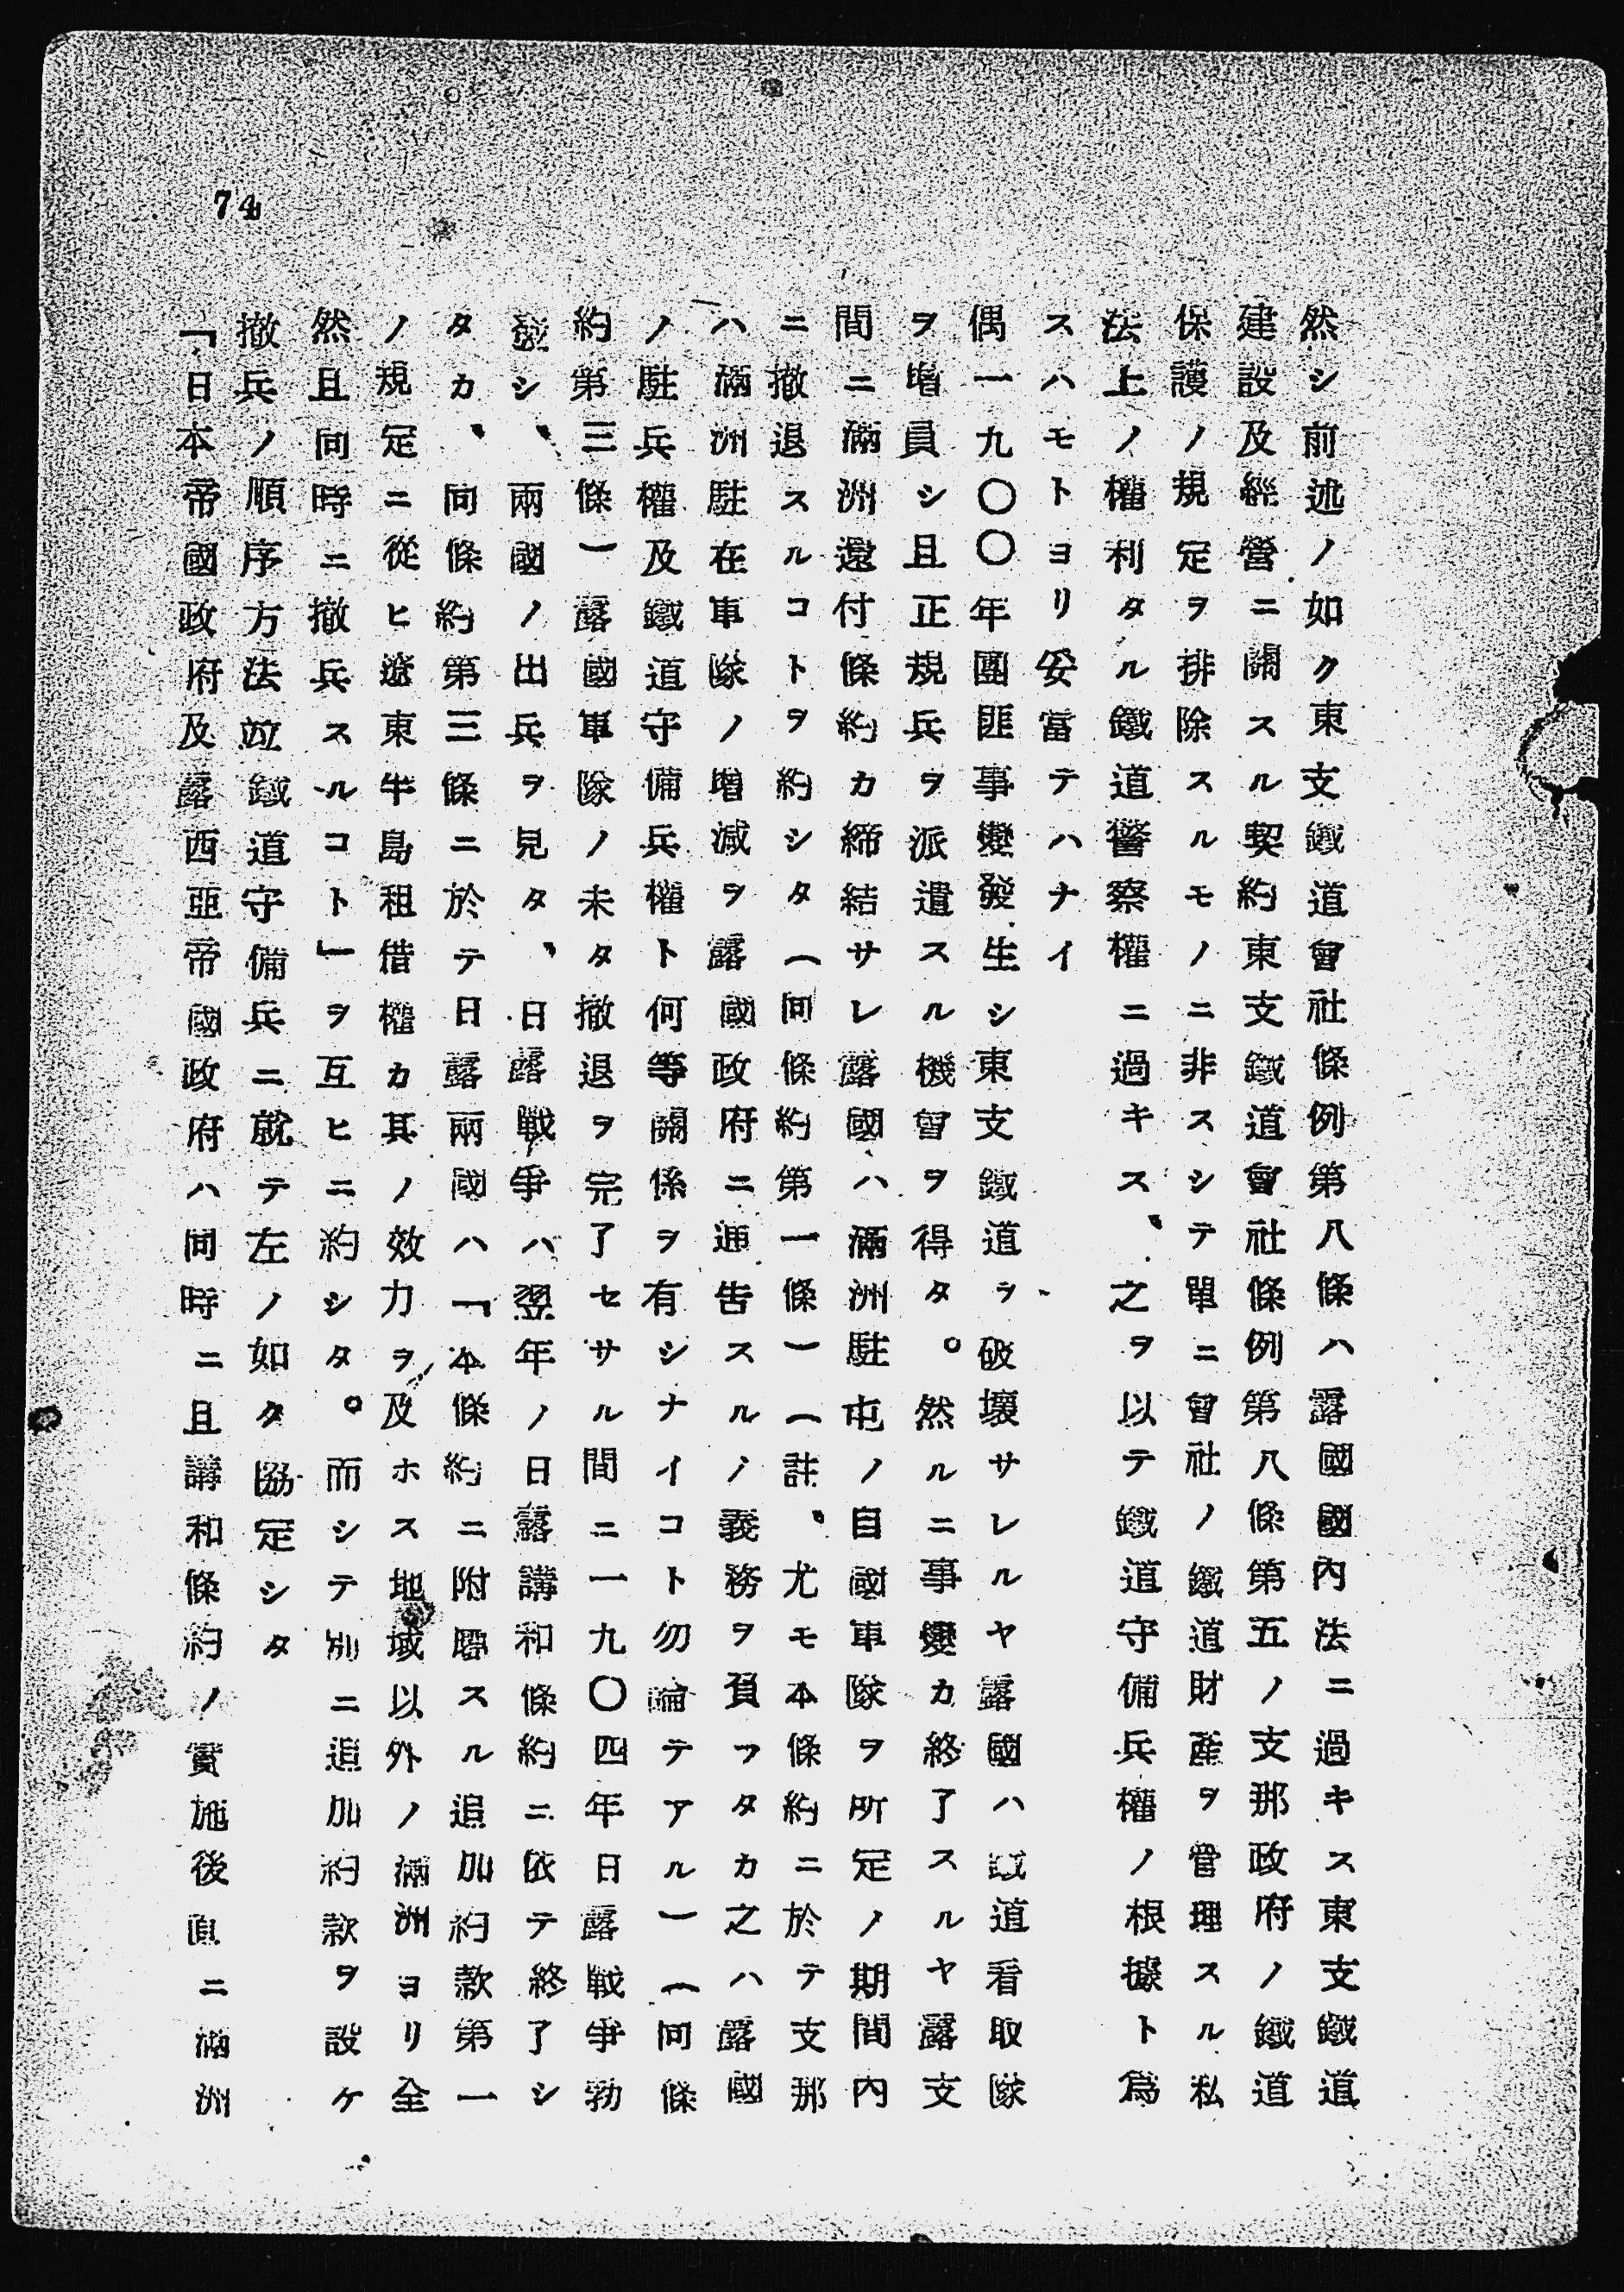 74
然シ前述ノ如ク東支鐵道會社條例第八條ハ露國國內法ニ過キス東支鐵道
建設及經營ニ關スル契約東支鐵道會社條例第八條第五ノ支那政府ノ鐵道
保護ノ規定ヲ排除スルモノニ非スシテ單ニ會社ノ鐵道財產ヲ管理スル私
法上ノ權利タル鐵道警察權ニ過キス、之ヲ以テ鐵道守備兵權ノ根據ト爲
スハモトヨリ妥當テハナイ
偶一九〇〇年團匪事變發生シ東支鐵道ヲ破壞サレルヤ露國ハ鐵道看取隊
ヲ增員シ且正規兵ヲ派遣スル機會ヲ得タ。然ルニ事變カ終了スルヤ露支
間ニ滿洲還付條約カ締結サレ露國ハ滿洲駐屯ノ自國軍隊ヲ所定ノ期間內
ニ撤退スルコトヲ約シタ(同條約第一條)(註、尤モ本條約ニ於テ支那
ハ滿洲駐在軍隊ノ增減ヲ露國政府ニ通告スルノ義務ヲ負フタカ之ハ露國
ノ駐兵權及鐵道守備兵權ト何等關係ヲ有シナイコト勿論テアル)(同條
約第三條)露國軍隊ノ未タ撤退ヲ完了セサル間ニ一九〇四年日露戰爭勃
發シ、兩國ノ出兵ヲ見タ、日露戰爭ハ翌年ノ日露講和條約ニ依テ終了シ
タカ、同條約第三條ニ於テ日露兩國ハ「本條約ニ附屬スル追加約款第一
ノ規定ニ從ヒ遼東半島租借權カ其ノ效力ヲ及ホス地域以外ノ滿洲ヨリ全
然且同時ニ撤兵スルコト」ヲ互ヒニ約シタ。而シテ別ニ追加約款ヲ設ケ
撤兵ノ順序方法竝鐵道守備兵ニ就テ左ノ如ク協定シタ
「日本帝國政府及露西亞帝國政府ハ同時ニ且講和條約ノ實施後直ニ滿洲